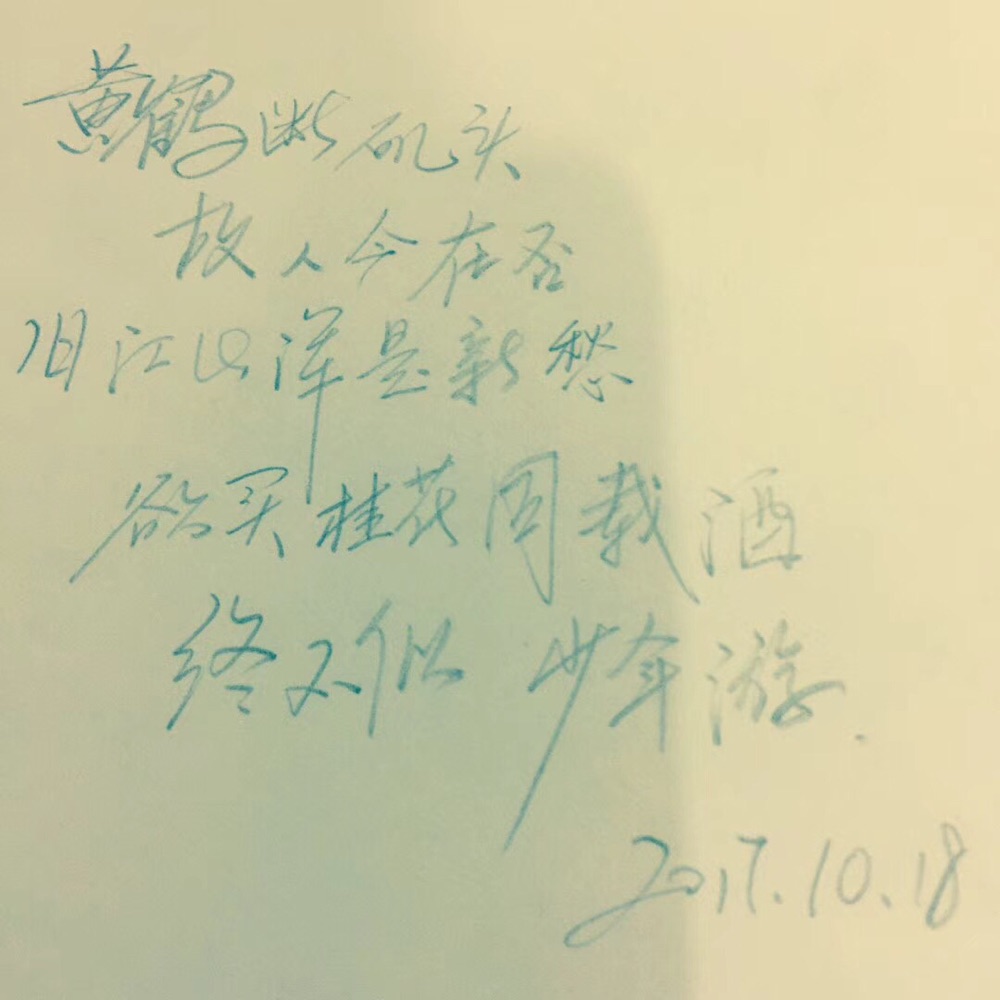 黄鹤断矶头
故人今在否
旧江山浑是新愁
欲买桂花同载酒
终不似 少年游.
2017.10.18